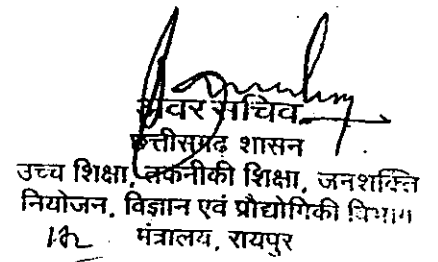 अवर सचिव
छत्तीसगढ़ शासन
उच्च शिक्षा, तकनीकी शिक्षा, जनशक्ति
नियोजन, विज्ञान एवं प्रौद्योगिकी विभाग
मंत्रालय, रायपुर